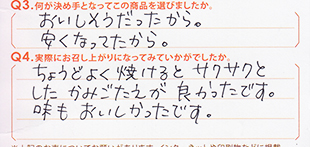 Q3.何が決め手となってこの商品を選びましたか。
おいしそうだったから。
安くなってたから。
Q4.実際にお召し上がりになってみていかがでしたか。
ちょうどよく焼けるとサクサクと
したかみごたえが良かったです。
味もおいしかったです。